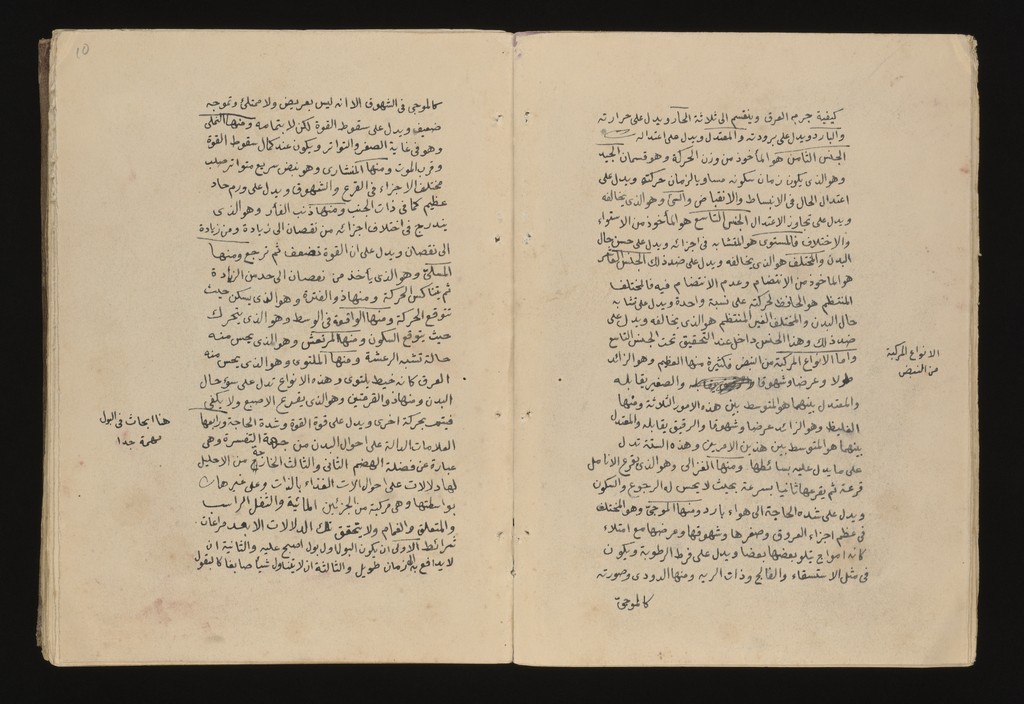 كيفية جرم العرق وينقسم الى ثلاثة الحار ويدل على حرارته
والبارد ويدل على برودته والمعتدل ويدل على اعتداله
الجنس الثامن هو المأخوذ من وزن الحركة وهو قسمان الجيد
وهو الذى يكون زمان سكونه مساويا لزمان حركته ويدل على
اعتدال الحال فى الانبساط والانقباض والسئ وهو الذى يخالفه
ويدل على تجاوز الاعتدال الجنس التاسع هو المأخوذ من الاستواء
والاختلاف فالمستوى هو المتشابه فى اجزائه ويدل على حسن حال
البدن والمختلف هو الذى يخالفه ويدل على ضد ذلك الجنس العاشر
هو الماخوذ من الانتضام وعدم الانتضام فيه فالمختلف
المنتظم هو الحافظ لحركته على نسبة واحدة ويدل على تشابه
حال البدن والمختلف الغير المنتظم هو الذى يخالفه ويدل على
ضد ذلك وهذا الجنس داخل عند التحقيق تحت الجنس التاسع
واما الانواع المركبة من النبض فكثيرة منها العظيم وهو الزائد
طولا وعرضا وشهوقا والصغير يقابله
والمعتدل بينهما هو المتوسط بين هذه الامور الثلاثة ومنها
الغليظ وهو الزائد عرضا وشهوقا والرقيق يقابله والمعتدل
بينهما هو المتوسط بين هذين الامرين وهذه الستة تدل
على ما يدل عليه بسائطها ومنها الغزالى وهو الذى يقرع الانامل
قرعة ثم يقرعها ثانيا بسرعة بحيث لا يحس له الرجوع والسكون
ويدل على شده الحاجة الى هواء بارد ومنها الموجى وهو المختلف
فى عظم اجزاء العروق وصغرها وشهوقها وعرضها مع امتلاء
كانه امواج يتلو بعضها بعضا ويدل على فرط الرطوبة ويكون
فى مثل الاستسقاء والفالج وذات الريه ومنها الدودى وصورته
كالموجى
الانواع المركبة
من النبض
10
كالموجى فى الشهوق الا انه ليس بعريض ولا ممتلئ وتموجه
ضعيف ويدل على سقوط القوة لكن لا بتمامه ومنها النملى
وهو فى غاية الصغر والتواتر ويكون عند كمال سقوط القوة
وقرب الموت ومنها المنشارى وهو نبض سريع متواتر صلب
مختلف الاجزاء فى القرع والشهوق ويدل على ورم حاد
عظيم كما فى ذات الجنب ومنها ذنب الفأر وهو الذى
يندرج فى اختلاف اجزائه من نقصان الى زيادة ومن زيادة
الى نقصان ويدل على ان القوة تضعف ثم ترجع ومنها
المسلى وهو الذى يأخذ من نقصان الى حد من الزيادة
ثم يتناكس الحركة ومنها ذو الفترة وهو الذى يسكن حيث
تتوقع الحركة ومنها الواقع فى الوسط وهو الذى يتحرك
حيث يتوقع السكون ومنها المرتعش وهو الذى يحس منه
حالة تشبه الرعشة ومنها الملتوى وهو الذى يحس منه
العرق كانه خيط يلتوى وهذه الانواع تدل على سؤ حال
البدن ومنها ذو القرعتين وهو الذى يقرع الاصبع ولا يكفى
فيتمم بحركة اخرى ويدل على قوة القوة وشدة الحاجة ورابعها
العلامات الدالة على احوال البدن من جهة التفسرة وهى
عبارة عن فضلة الهضم الثانى والثالث الخارجة من الاحليل
لها دلالات على احوال الات الغذاء بالذات وعلى غيرها
بواسطتها وهى مركبة من الجزئين المائية والثفل الراسب
والمتعلق والغمام ولا يتحقق تلك الدلالات الا بعد مراعات
شرائط الاولى ان يكون البول اول بول اصبح عليه والثانية ان
لا يدافع به لزمان طويل والثالثة ان لا يتناول شيأ صابغا كالبقول
هنا ابحاث فى البول
مهمة جدا